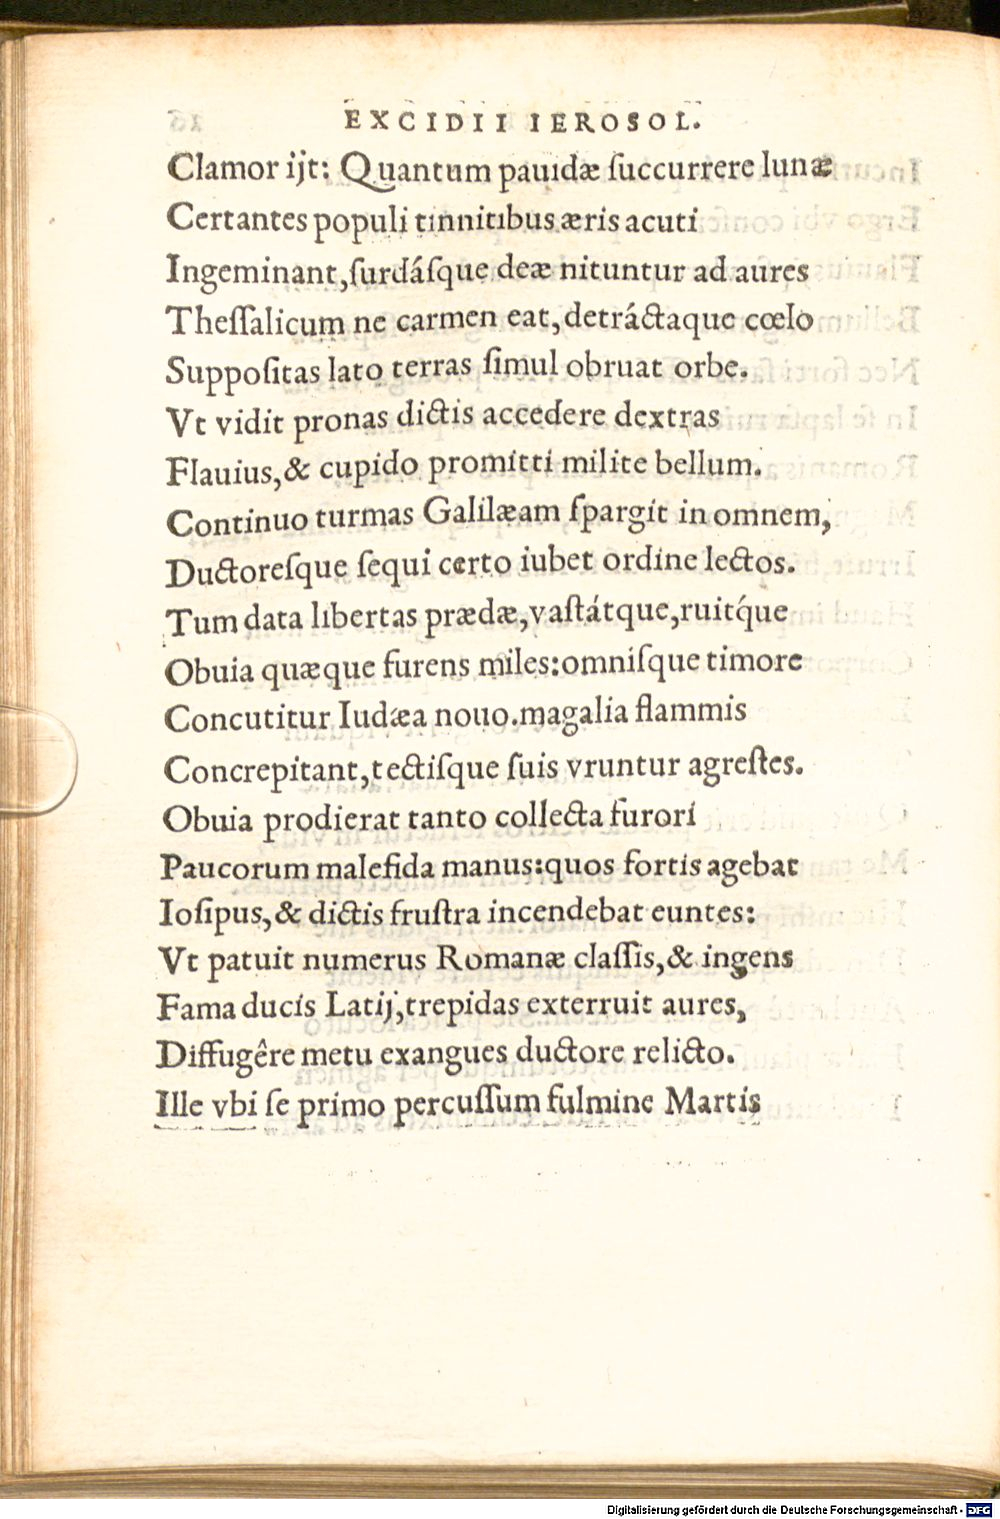 EXCIDII IEROSOL.
Clamor ijt: Quantum pauidæ ſuccurrere lunæ
Certantes populi tinnitibus æris acuti
Ingeminant, ſurdáſque deæ nituntur ad aures
Theſſalicum ne carmen eat, detráctaque cœlo
Suppoſitas lato terras ſimul obruat orbe.
Vt vidit pronas dictis accedere dextras
Flauius, & cupido promitti milite bellum.
Continuo turmas Galilæam ſpargit in omnem,
Ductoreſque ſequi certo iubet ordine lectos.
Tum data libertas prædæ, vaſtátque, ruitq́ue
Obuia quæque furens miles: omniſque timore
Concutitur Iudæa nouo. magalia flammis
Concrepitant, tectiſque ſuis vruntur agreſtes.
Obuia prodierat tanto collecta furori
Paucorum malefida manus: quos fortis agebat
Ioſipus, & dictis fruſtra incendebat euntes:
Vt patuit numerus Romanæ claſſis, & ingens
Fama ducis Latij, trepidas exterruit aures,
Diffugêre metu exangues ductore relicto.
Ille vbi ſe primo percuſſum fulmine Martis
Digitalisierung gefördert durch die Deutsche Forschungsgemeinschaft - DFG